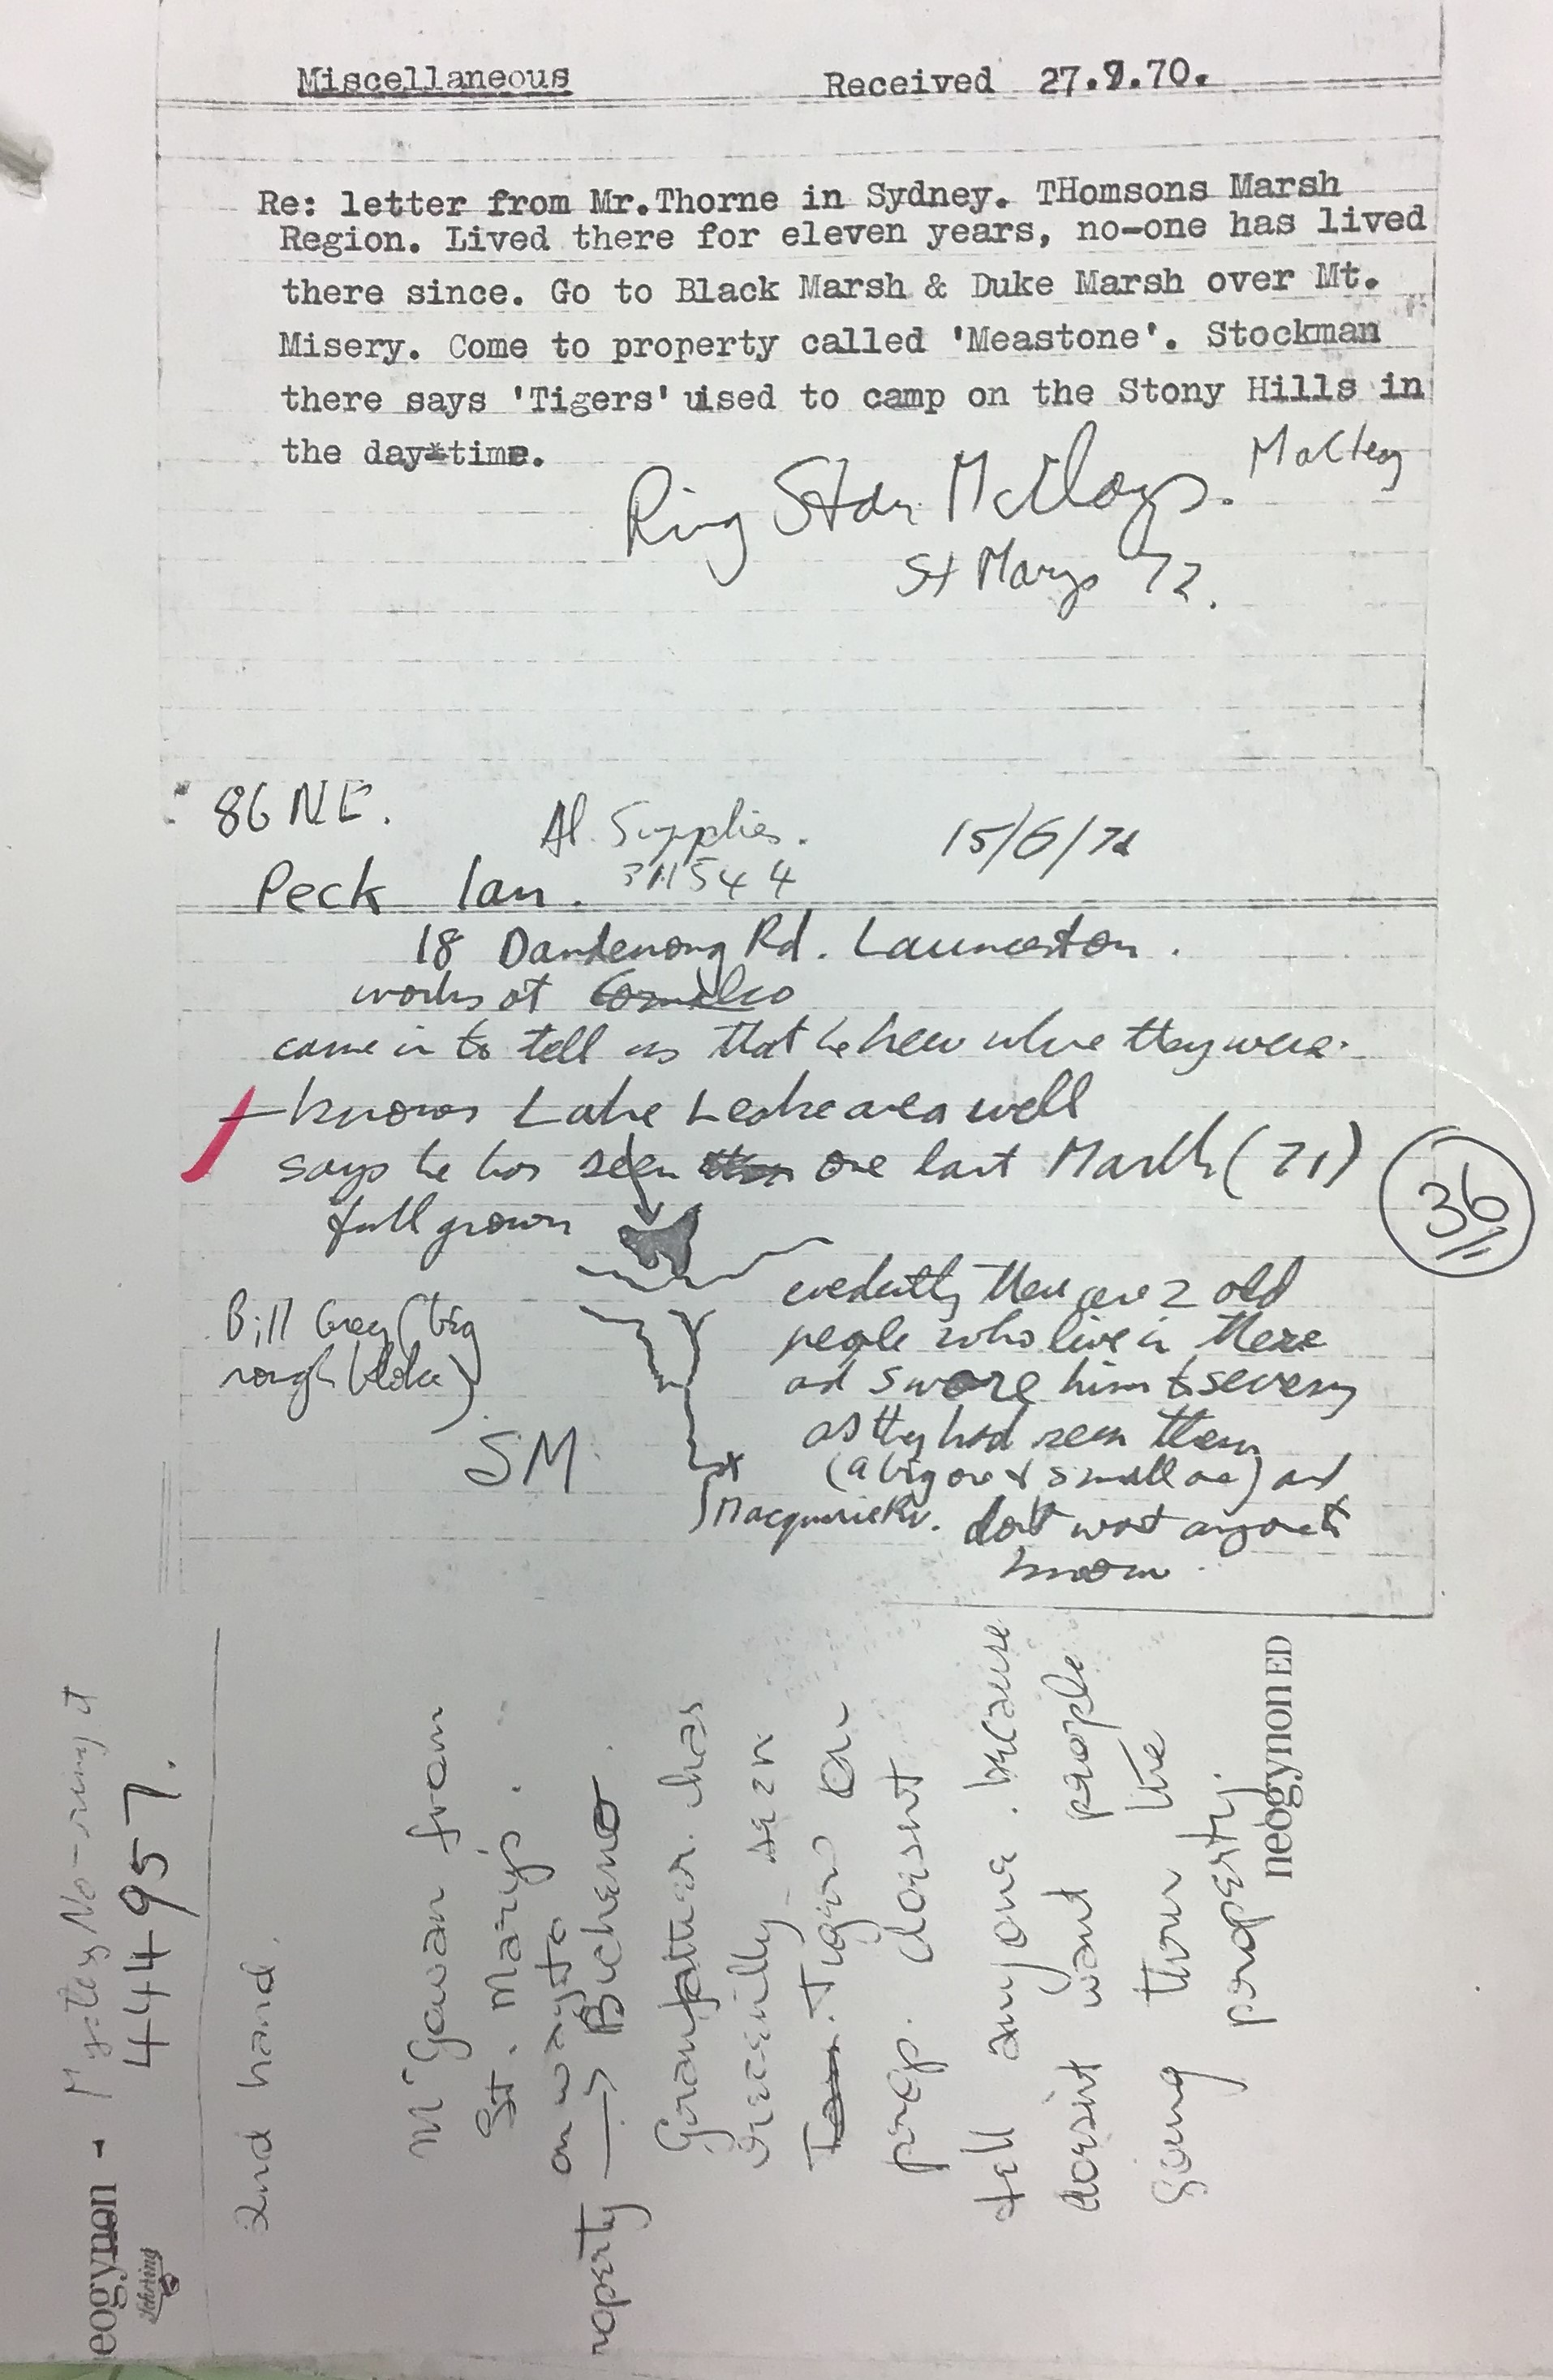 Miscellaneous Received 27.9.70.
Re: letter from Mr.Thorne in Sydney. THomsons Marsh
Region. Lived there for eleven years, no-one has lived
there since. Go to Black Marsh & Duke Marsh over Mt.
Misery. Come to property called 'Meastone'. Stockman
there says 'Tigers' uised to camp on the Stony Hills in
the day-time.
Ring Stan
St Marys 72.
86 NE.
Al. Supplies. 15/6/71
Peck Ian. 311544
18 Dandenong Rd. Launceston.
works at Comalco
came in to tell us that he knew where they were.
knows Lake Leake area well
says he has seen one last March (71)
full grown
36
Bill Grey (big
rough bloke)
SM.
Macquarie Rv.
evedently there are 2 old
people who live in there
and swore him to secresy
as they had seen them
(a big one & small one) and
don't want anyone to
know.
eogynon - No - ring it
Schering 444957.
2nd hand.
McGowan from
St. Mary's.
on way to
roperty → Bicheno.
Grandfather has
recently seen
Tiger on
prop. doesnt
tell anyone. because
doesnt want people
going thour the
property.
neogynon ED